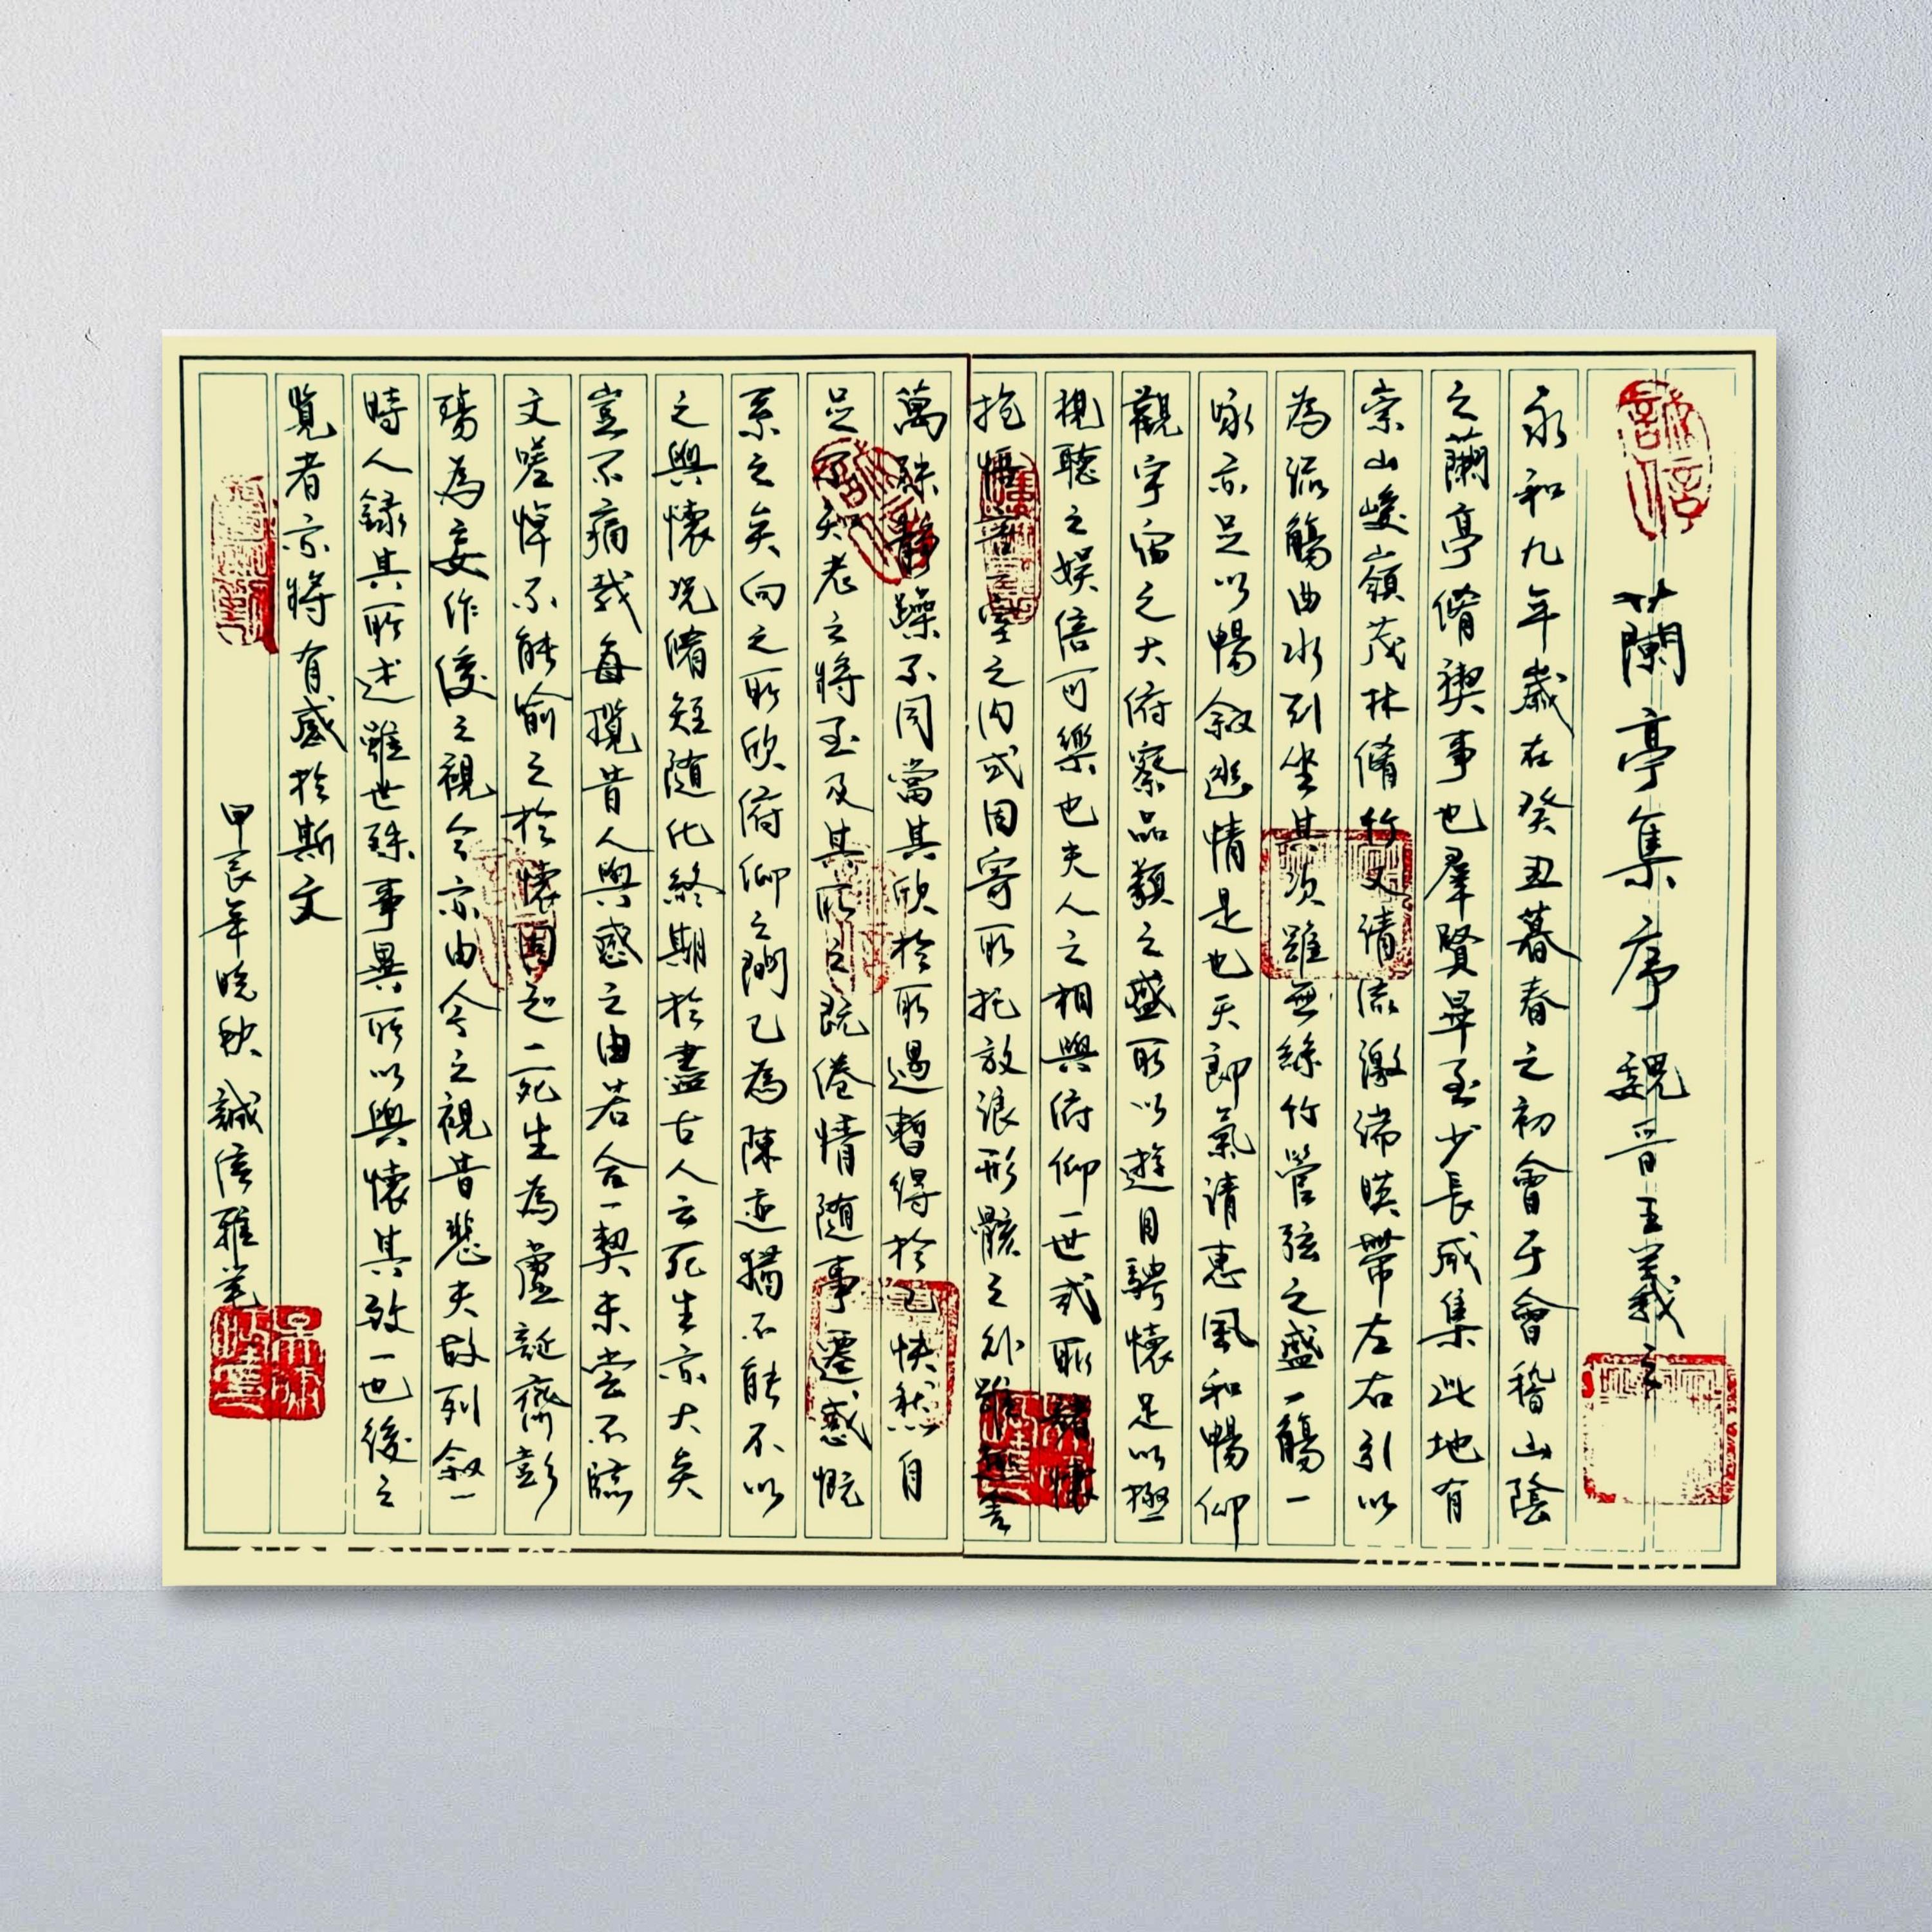 蘭亭集序 魏晋王羲之
永和九年歲在癸丑暮春之初會于會稽山陰
之蘭亭脩禊事也羣賢畢至少長咸集此地有
崇山峻嶺茂林脩竹又清流激湍暎帶左右引以
為流觴曲水列坐其次雖無絲竹管弦之盛一觴一
咏亦足以暢敘幽情是也天朗氣清惠風和暢仰
觀宇宙之大俯察品類之盛所以遊目騁懷足以極
視聽之娛信可樂也夫人之相與俯仰一世或取諸懷
抱悟言一室之內或因寄所托放浪形骸之外雖趣舍
萬殊靜躁不同當其欣於所遇暫得於己快然自
足不知老之將至及其所之既倦情隨事遷感慨
系之矣向之所欣俯仰之間已為陳迹猶不能不以
之興懷況脩短隨化終期於盡古人云死生亦大矣
豈不痛哉每攬昔人興感之由若合一契未嘗不臨
文嗟悼不能喻之於懷固知一死生為虛誕齊彭
殤為妄作後之視今亦由今之視昔悲夫故列叙一
時人録其所述雖世殊事異所以興懷其致一也後之
覽者亦將有感於斯文
甲辰年晚秋 誠信雅